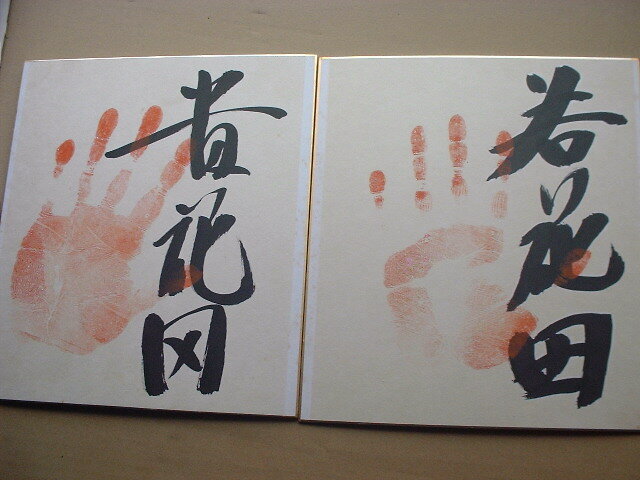 若花田
貴花田